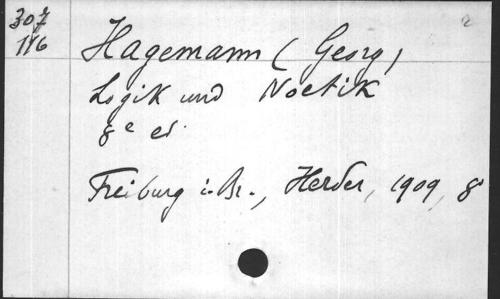 307
116
Hagemann (Georg)
Logik und Noetik
8e éd.
Freiburg i. Br., Herder, 1909, 8°